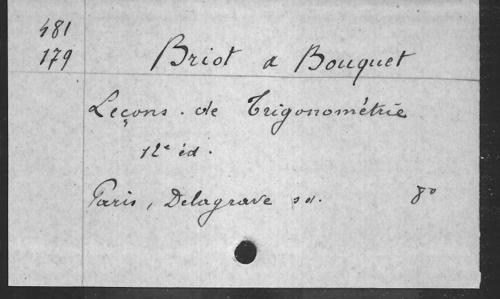 481
179
Briot & Bouquet
Leçons de Trigonométrie
12e éd.
Paris, Delagrave sd. 8o